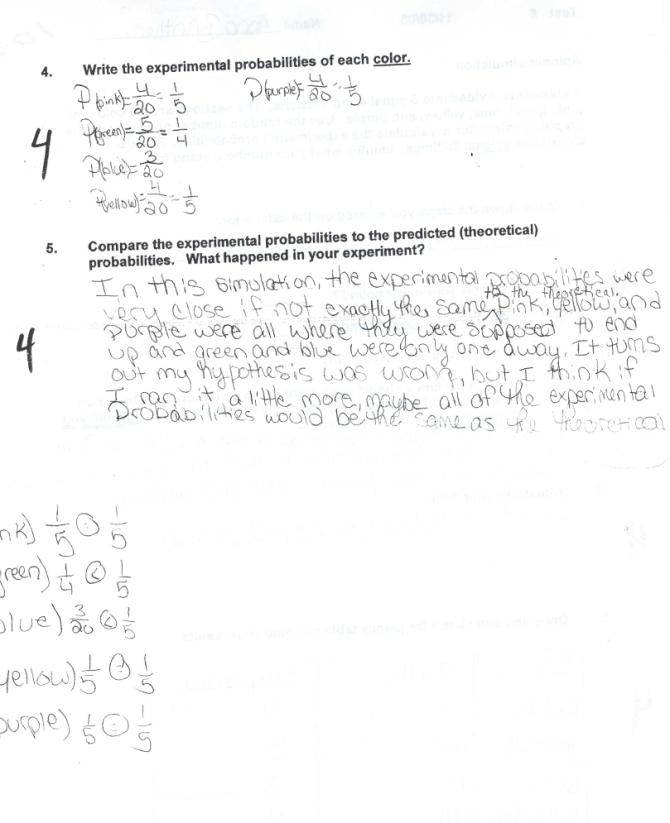 4. Write the experimental probabilities of each color.
P(pink)= 4/20 = 1/5 P(purple)= 4/20 = 1/5
4 P(green)= 5/20 = 1/4
P(blue)= 3/20
P(yellow)= 4/20 = 1/5
5. Compare the experimental probabilities to the predicted (theoretical)
probabilities. What happened in your experiment?
In this simulation, the experimental probabilities were
to the theoretical.
very close if not exactly the same Pink, yellow, and
4 purple were all where they were supposed to end
up and green and blue were only one away. It turns
out my hypothesis was wrong, but I think if
I ran it a little more, maybe all of the experimental
probabilities would be the same as the theoretical
nk) 1/5 = 1/5
green) 1/4 1/5
blue) 3/20 1/5
yellow) 1/5 = 1/5
purple) 1/5 = 1/5